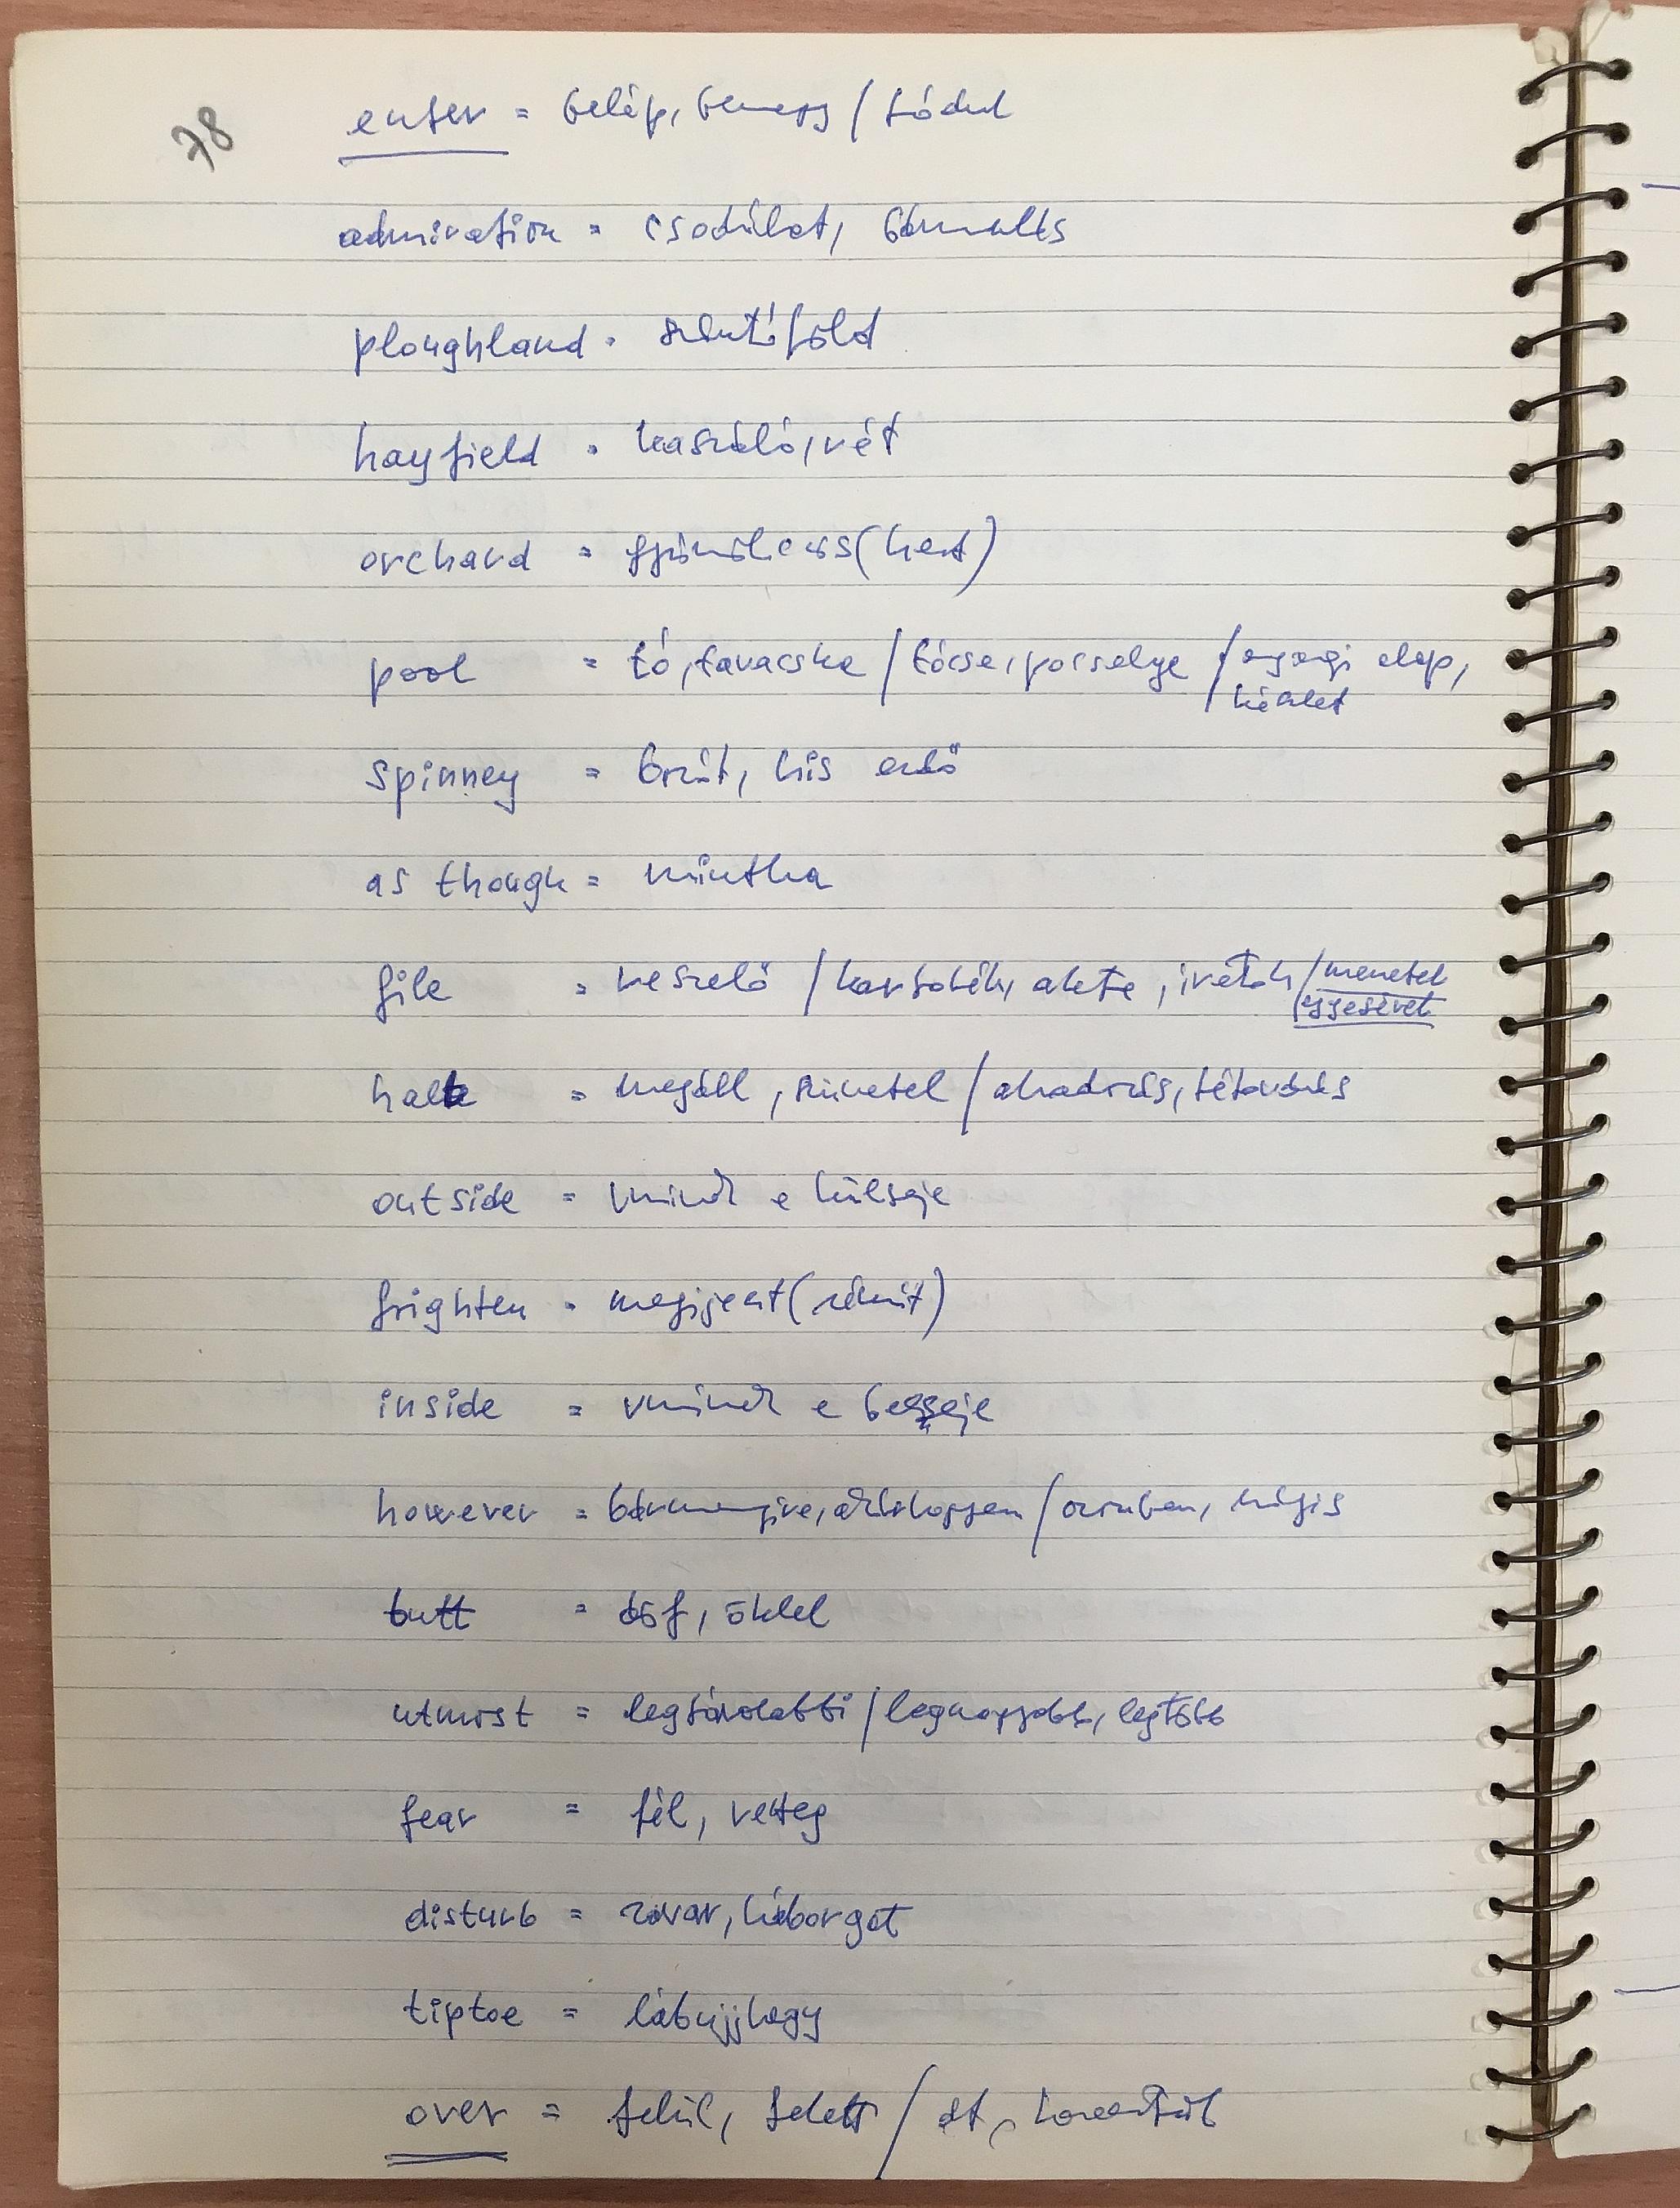 78
enter = belép, bemegy / tódul
admiration = csodálat, bámulás
ploughland = szántóföld
hayfield = kaszáló, rét
orchard = gyümölcsös(kert)
pool = tó, tavacska / tócsa, pocsolya / anyagi alap,
készlet
spinney = bozót, kis erdő
as though = mintha
file = reszelő / kartoték, akta, iratok / menetel
egyesével
halt = megáll, szünetel / akadozás, tétovázás
outside = vminek a külseje
frighten = megijeszt (rémít)
inside = vminek a belseje
however = bármennyire, akárhogyan / azonban, mégis
butt = döf, öklel
utmost = legtávolabbi / legnagyobb, legtöbb
fear = fél, retteg
disturb = zavar, háborgat
tiptoe = lábujjhegy
over = felül, felett / át, keresztül